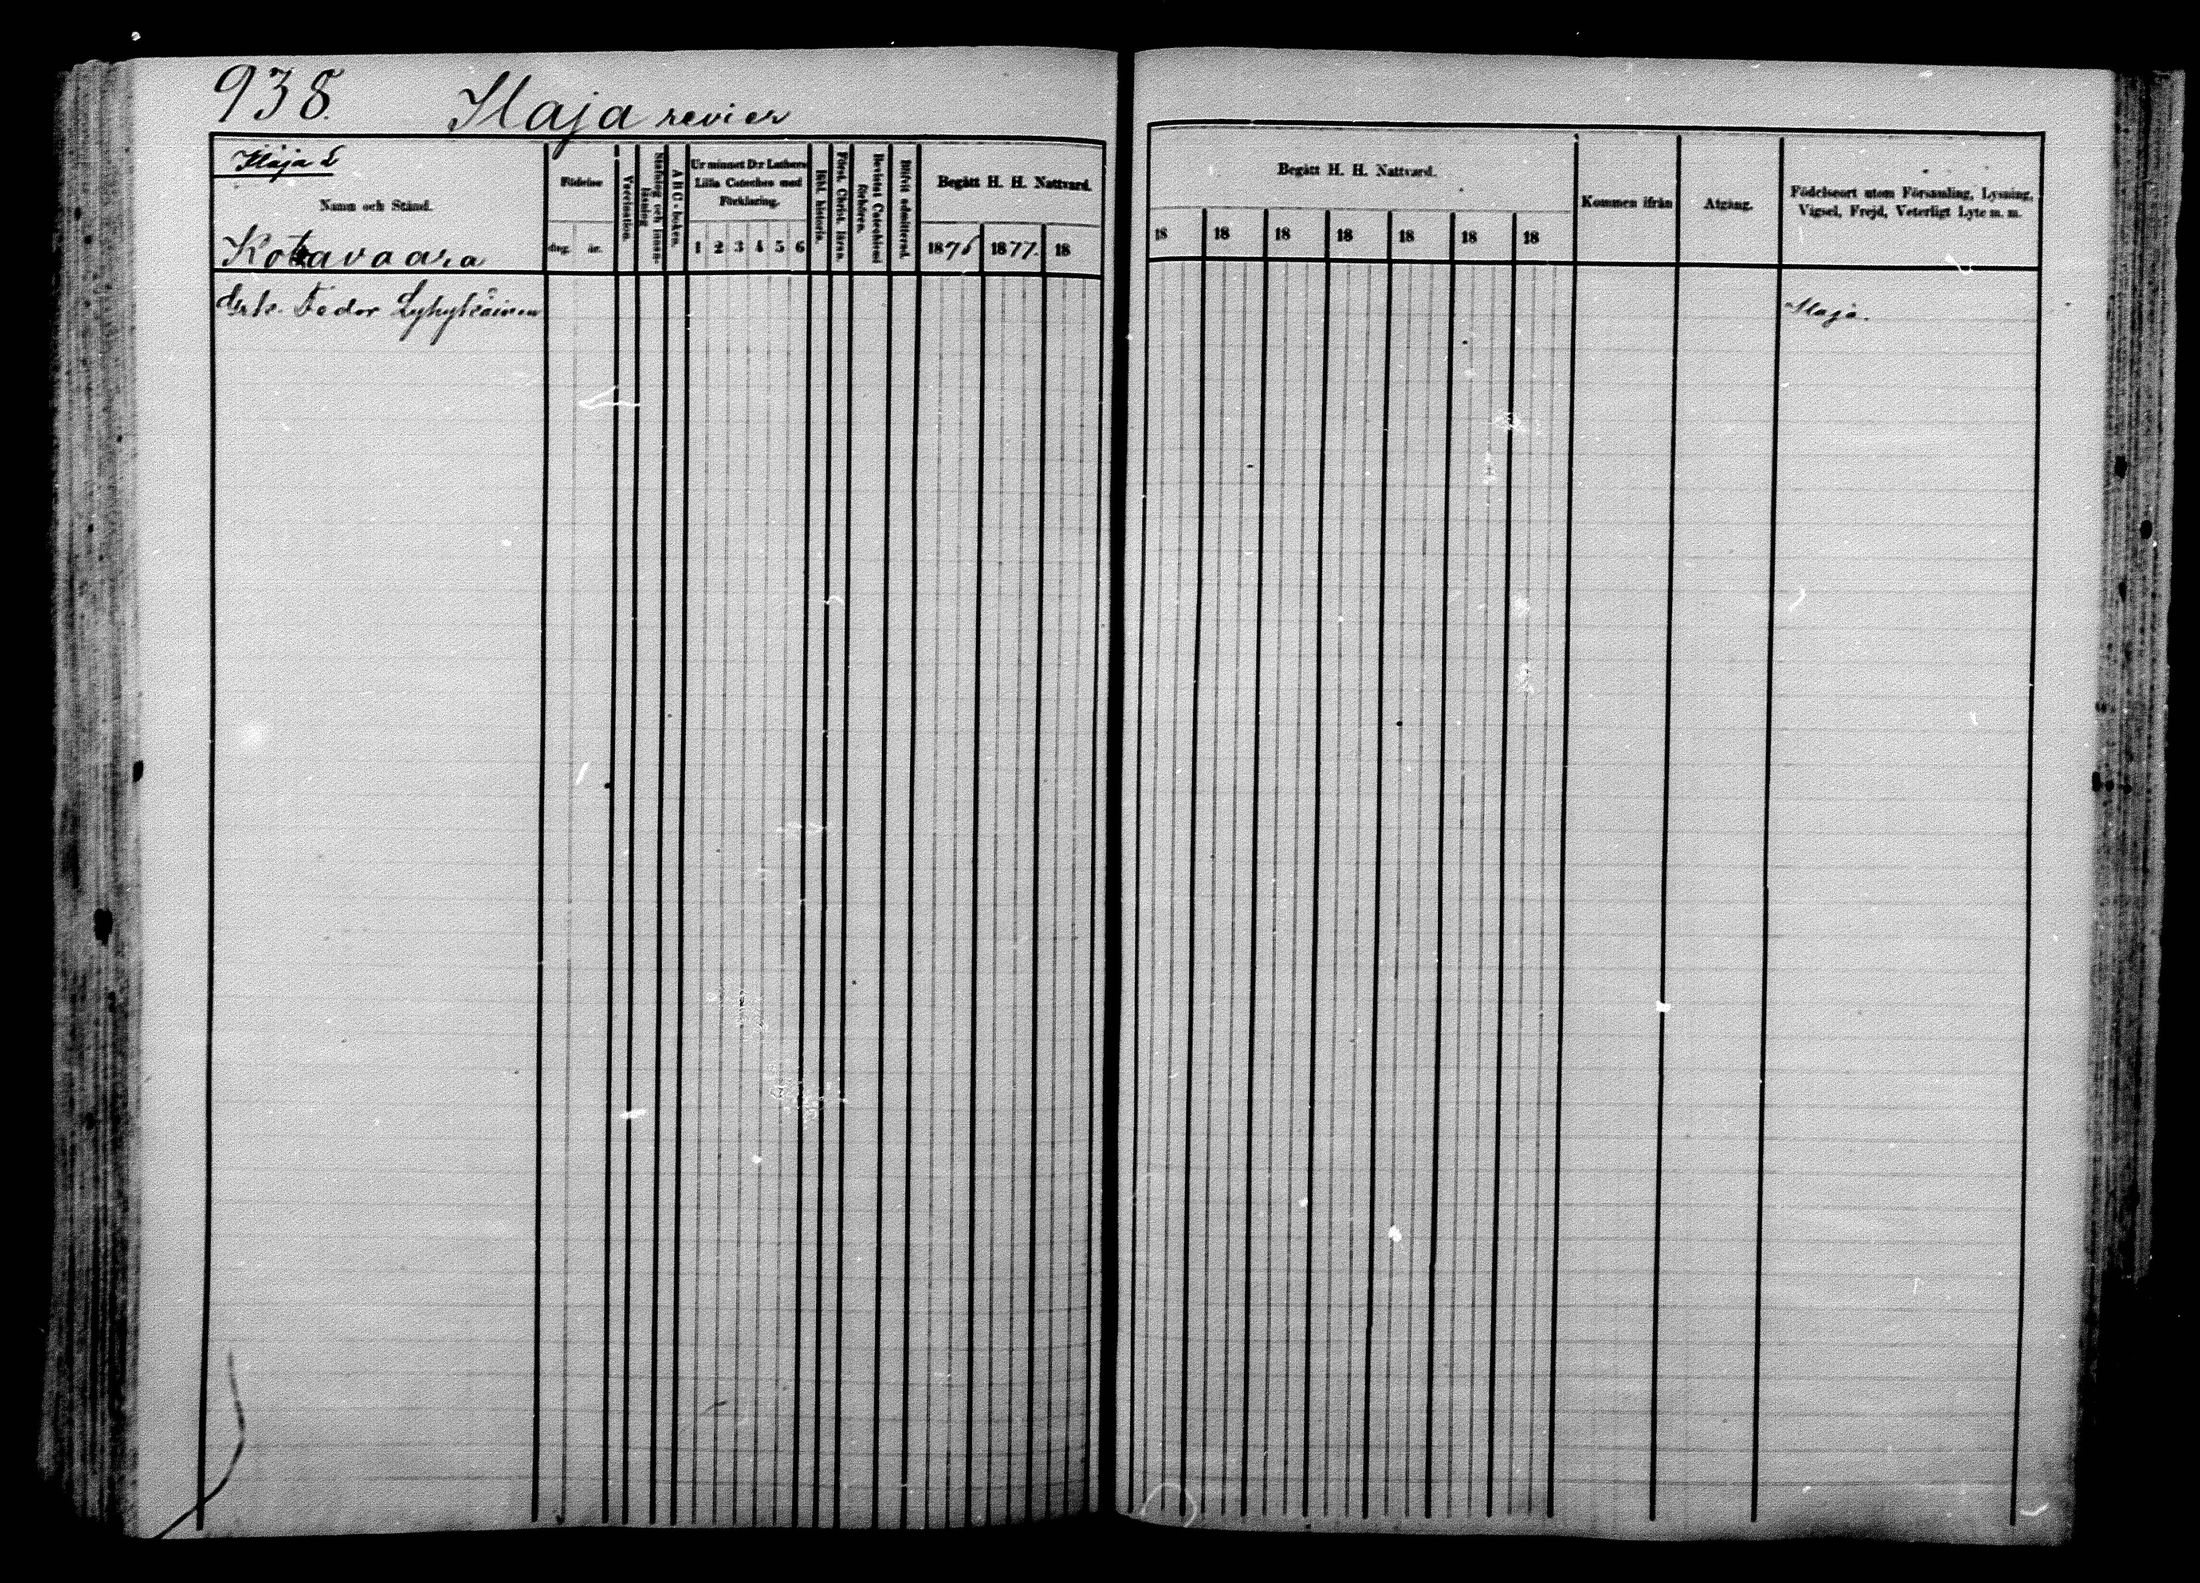 938. Ilaja revier
Ilaja 2
Namn och Stånd.
Kotavaara
Födelse
dag. år.
Vaccination.
Stafning och innan-läsning
A B C-boken.
Ur minnet D:r Luthers
Lilla Cateches med
Förklaring.
1 2 3 4 5 6
Bibl. historia.
Först. Christ. läran.
Bevistat Catechismi förhören.
Blifvit admitterad.
Begått H. H. Nattvard.
1876 1877. 18
Fedor Lyhykäinen
Begått H. H. Nattvard.
18 18 18 18 18 18 18
Kommen ifrån
Afgång.
Födelseort utom Församling, Lysning,
Vigsel, Frejd, Veterligt Lyte m. m.
Ilaja.